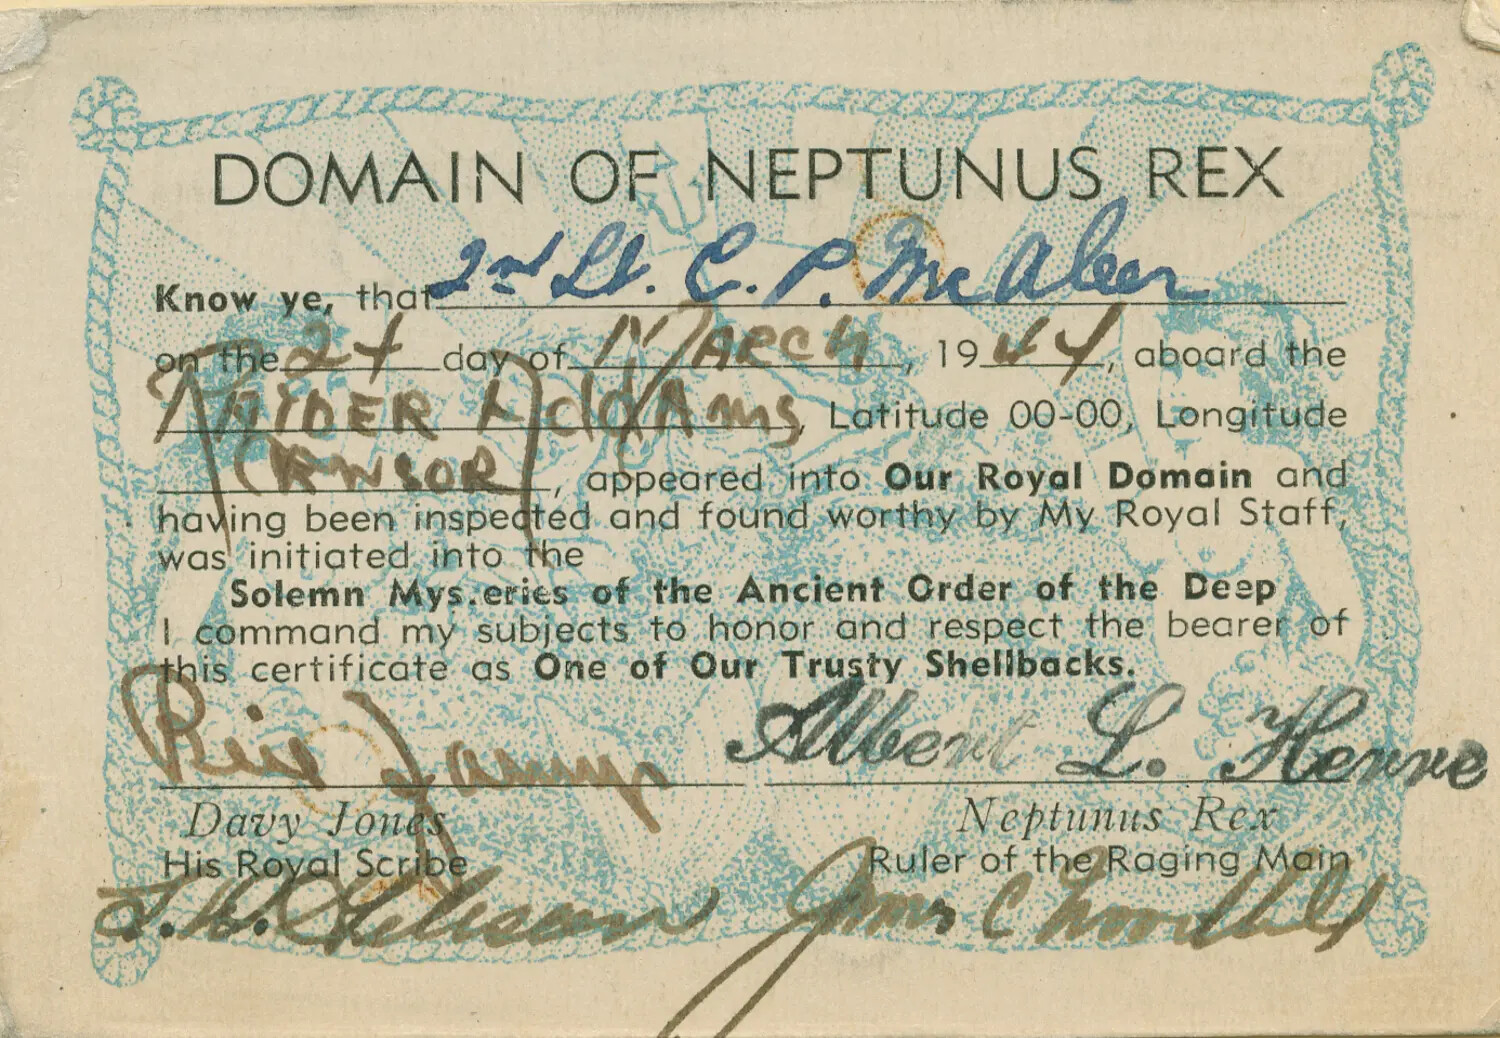 DOMAIN OF NEPTUNUS REX
Know ye, that 2nd Lt. C. P. McAleer
on the 24 day of March, 1944, aboard the
Latitude 00-00, Longitude
, appeared into Our Royal Domain and
having been inspected and found worthy by My Royal Staff,
was initiated into the
Solemn Mys.eries of the Ancient Order of the Deep
I command my subjects to honor and respect the bearer of
this certificate as One of Our Trusty Shellbacks.
Albert L.
Davy Jones Neptunus Rex
His Royal Scribe Ruler of the Raging Main